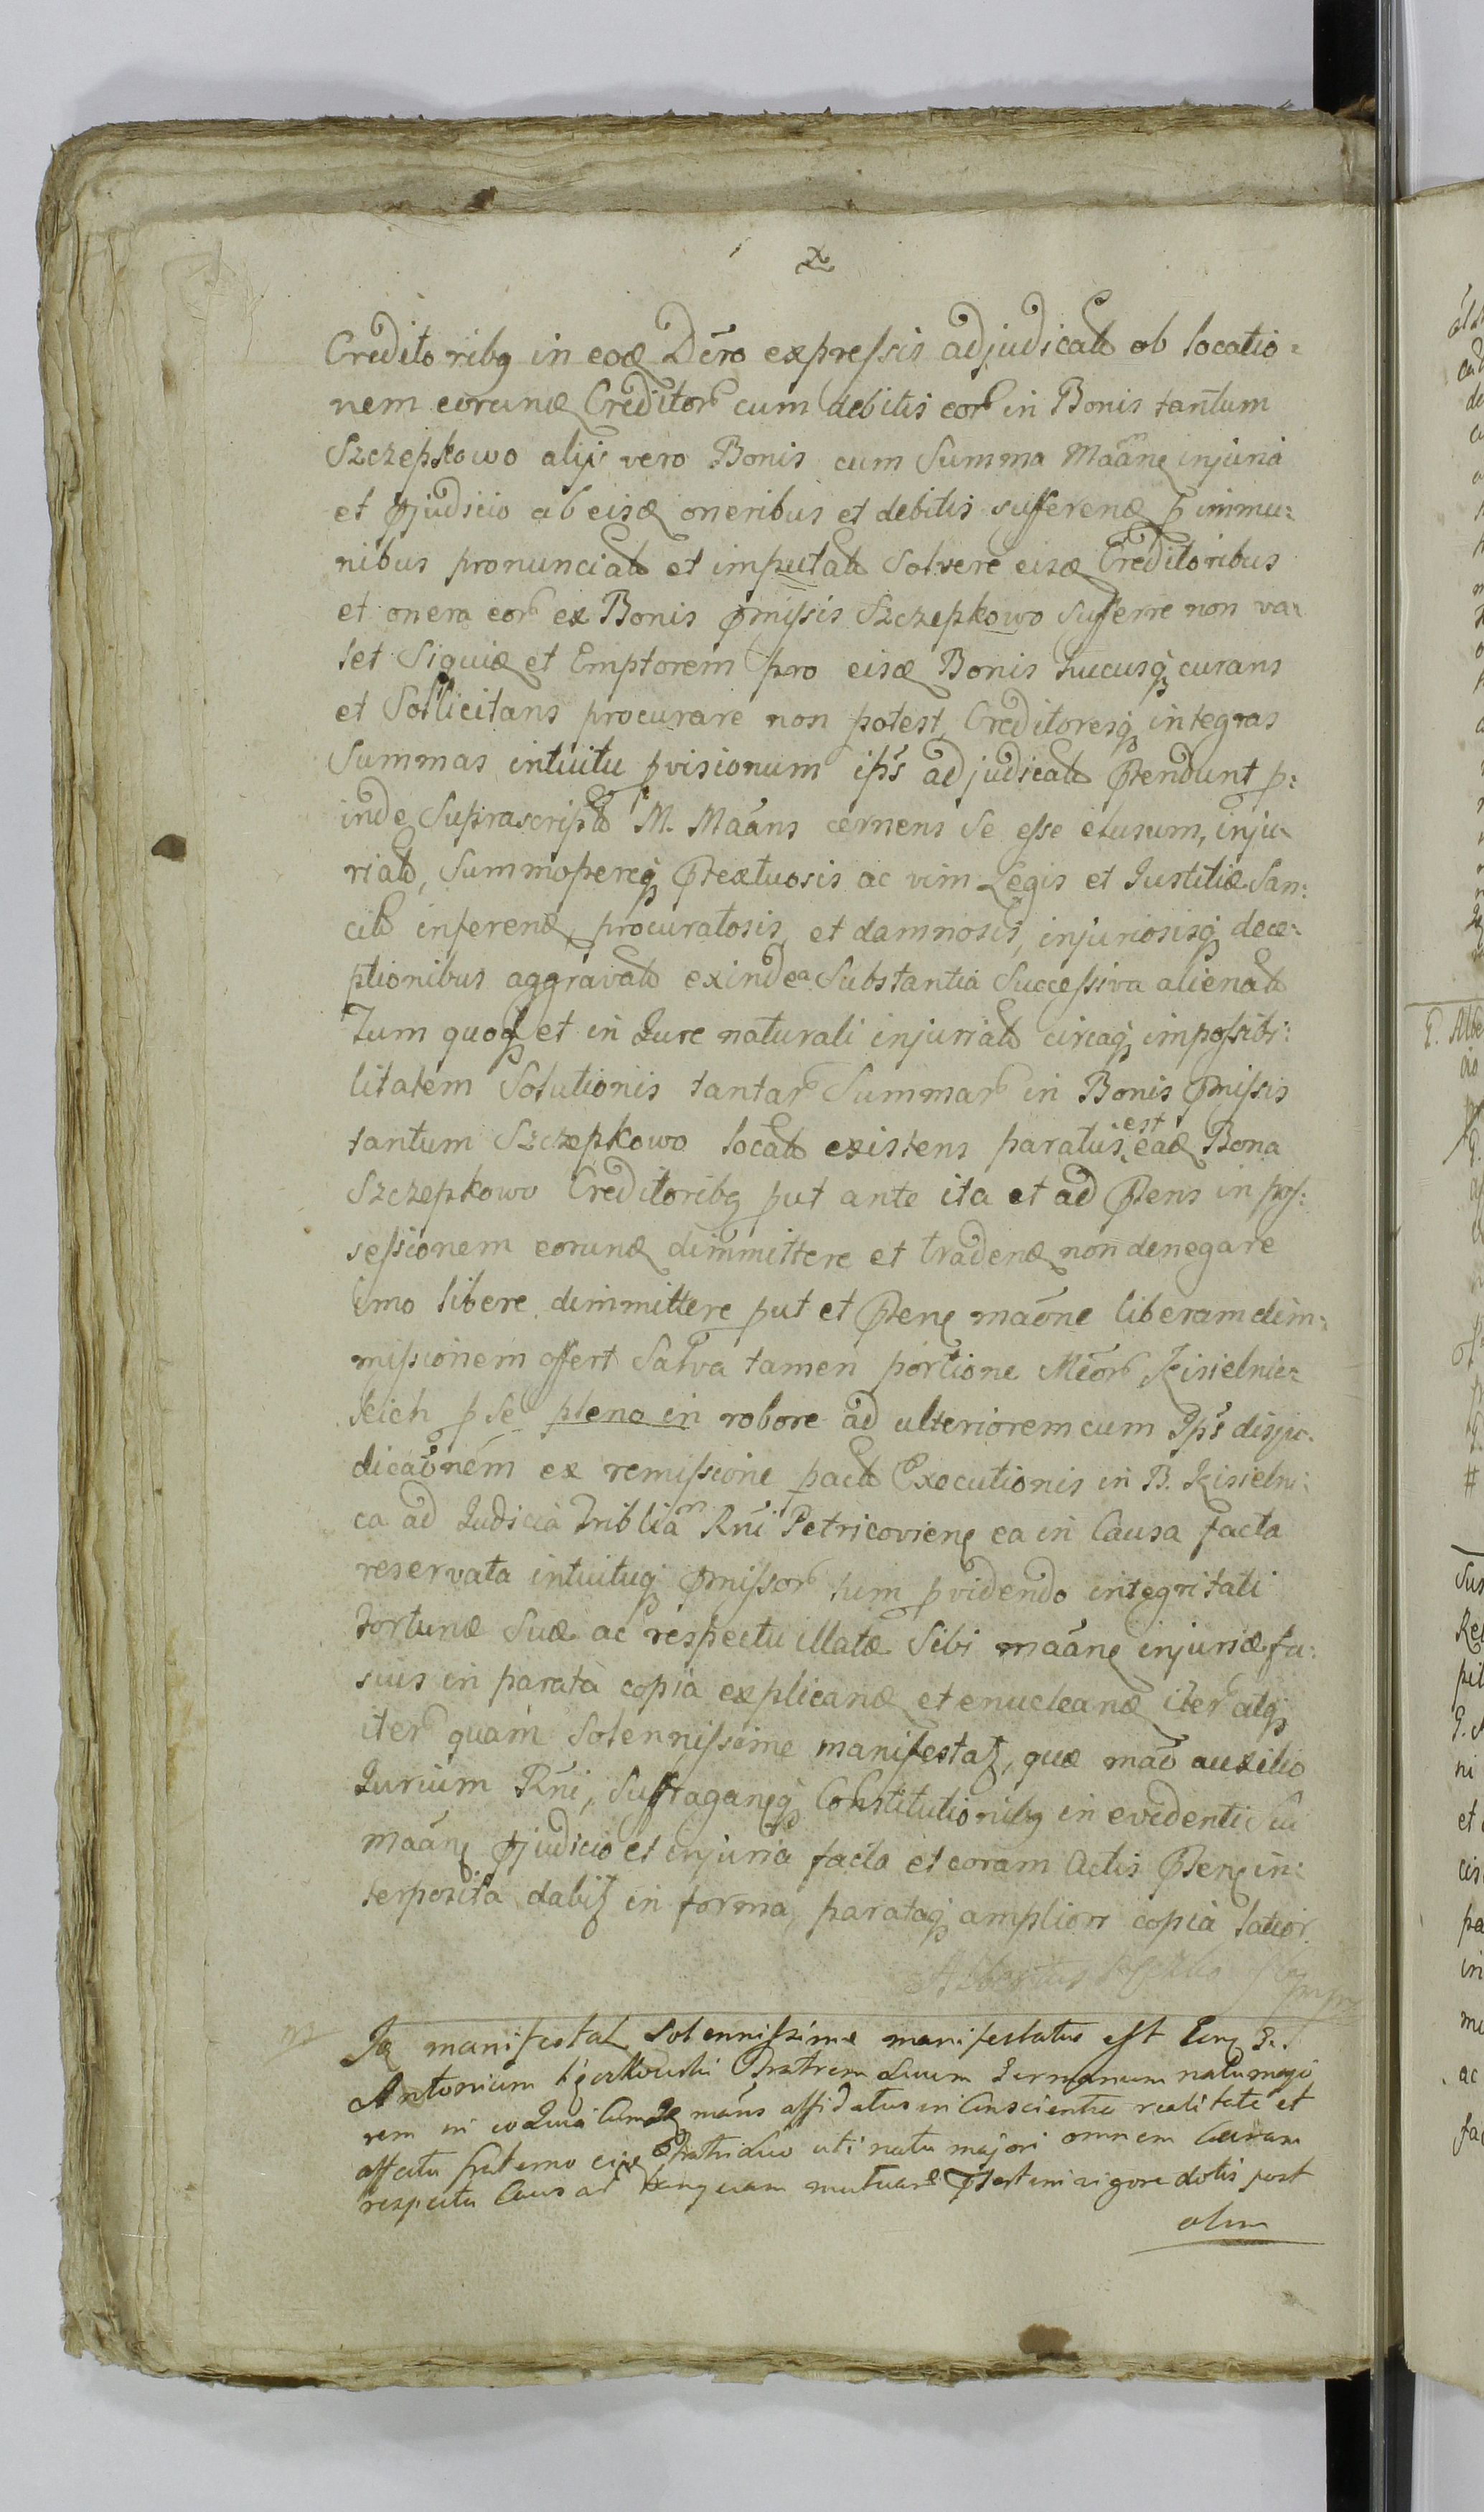 Creditoribq in eod Dēro expressis adjudicato ob locatio=
nem eorund Creditor cum debitis eor in Bonis tantum
Szczepkowo alijs vero Bonis cum Summa Maāne injuria
et pjudicio ab eisd oneribus et debitis sufferend p immu=
nibus pronunciato et imputato Solvere eisd Creditoribus
et onera eor ex Bonis pmissis Szczepkowo sufferre non va=
let Siquid et Emptorem pro eisd Bonis hucusq curans
et Sollicitans procurare non potest, Creditoresq integras
Summas intuitu pvisionum ips adjudicato ptendunt p=
inde Suprascripto M. Maāns cernens se esse elusum, inju=
riato, Summopereq ptextuosis ac vim Legis et Justitiæ San=
cito inferend, procuratosis, et damnosis, injuriosisq dece=
ptionibus aggravato exindea Substantia Successiva alienato
Tum quoq et in Jure naturali injuriato circaq impossibi=
litatem Solutionis tantar Summar in Bonis pmissis
tantum Szczepkowo locato existens paratus est ead Bona
Szczepkowo Creditoribq put ante ita et ad ptens in pos=
sessionem eorund dimmittere et tradend non denegare
imo libere dimmittere put et ptene maōne liberam dim=
missionem offert Salva tamen portione Mēor Kisielnic=
kich p se pleno in robore ad ulteriorem cum Ips disju=
dicaōnem ex remissione pacto Executionis in B. Kisielni=
ca ad Judicia Triblia Rñi Petricoviene ea in Causa facta
reservata intuituq pmissor tum pvidendo integritati
Fortunæ Suæ ac respectu illatæ Sibi maāne injuriæ fu=
sius in parata copia explicand et enucleand iter atq
iter quam Solennissime manifestat, quæ maō auxilio
Jurium Rñi, Suffraganeq Constitutionibq in evidenti sui
maāne pjudicio et injuria facta et coram Actis ptene in=
terposita dabit in forma, parataq ampliori copia latior.
Albertus
Id manifestat Solennissime manifestatus est
Antonium Fratrem Suum Germanum natu majo
rem in eo Quia mans affidatus in Conscientia realitate et
affectu fraterno Fratri Suo uti natu majori omnem Curam
respectu Causar tanquam in rigore dotis post
olim